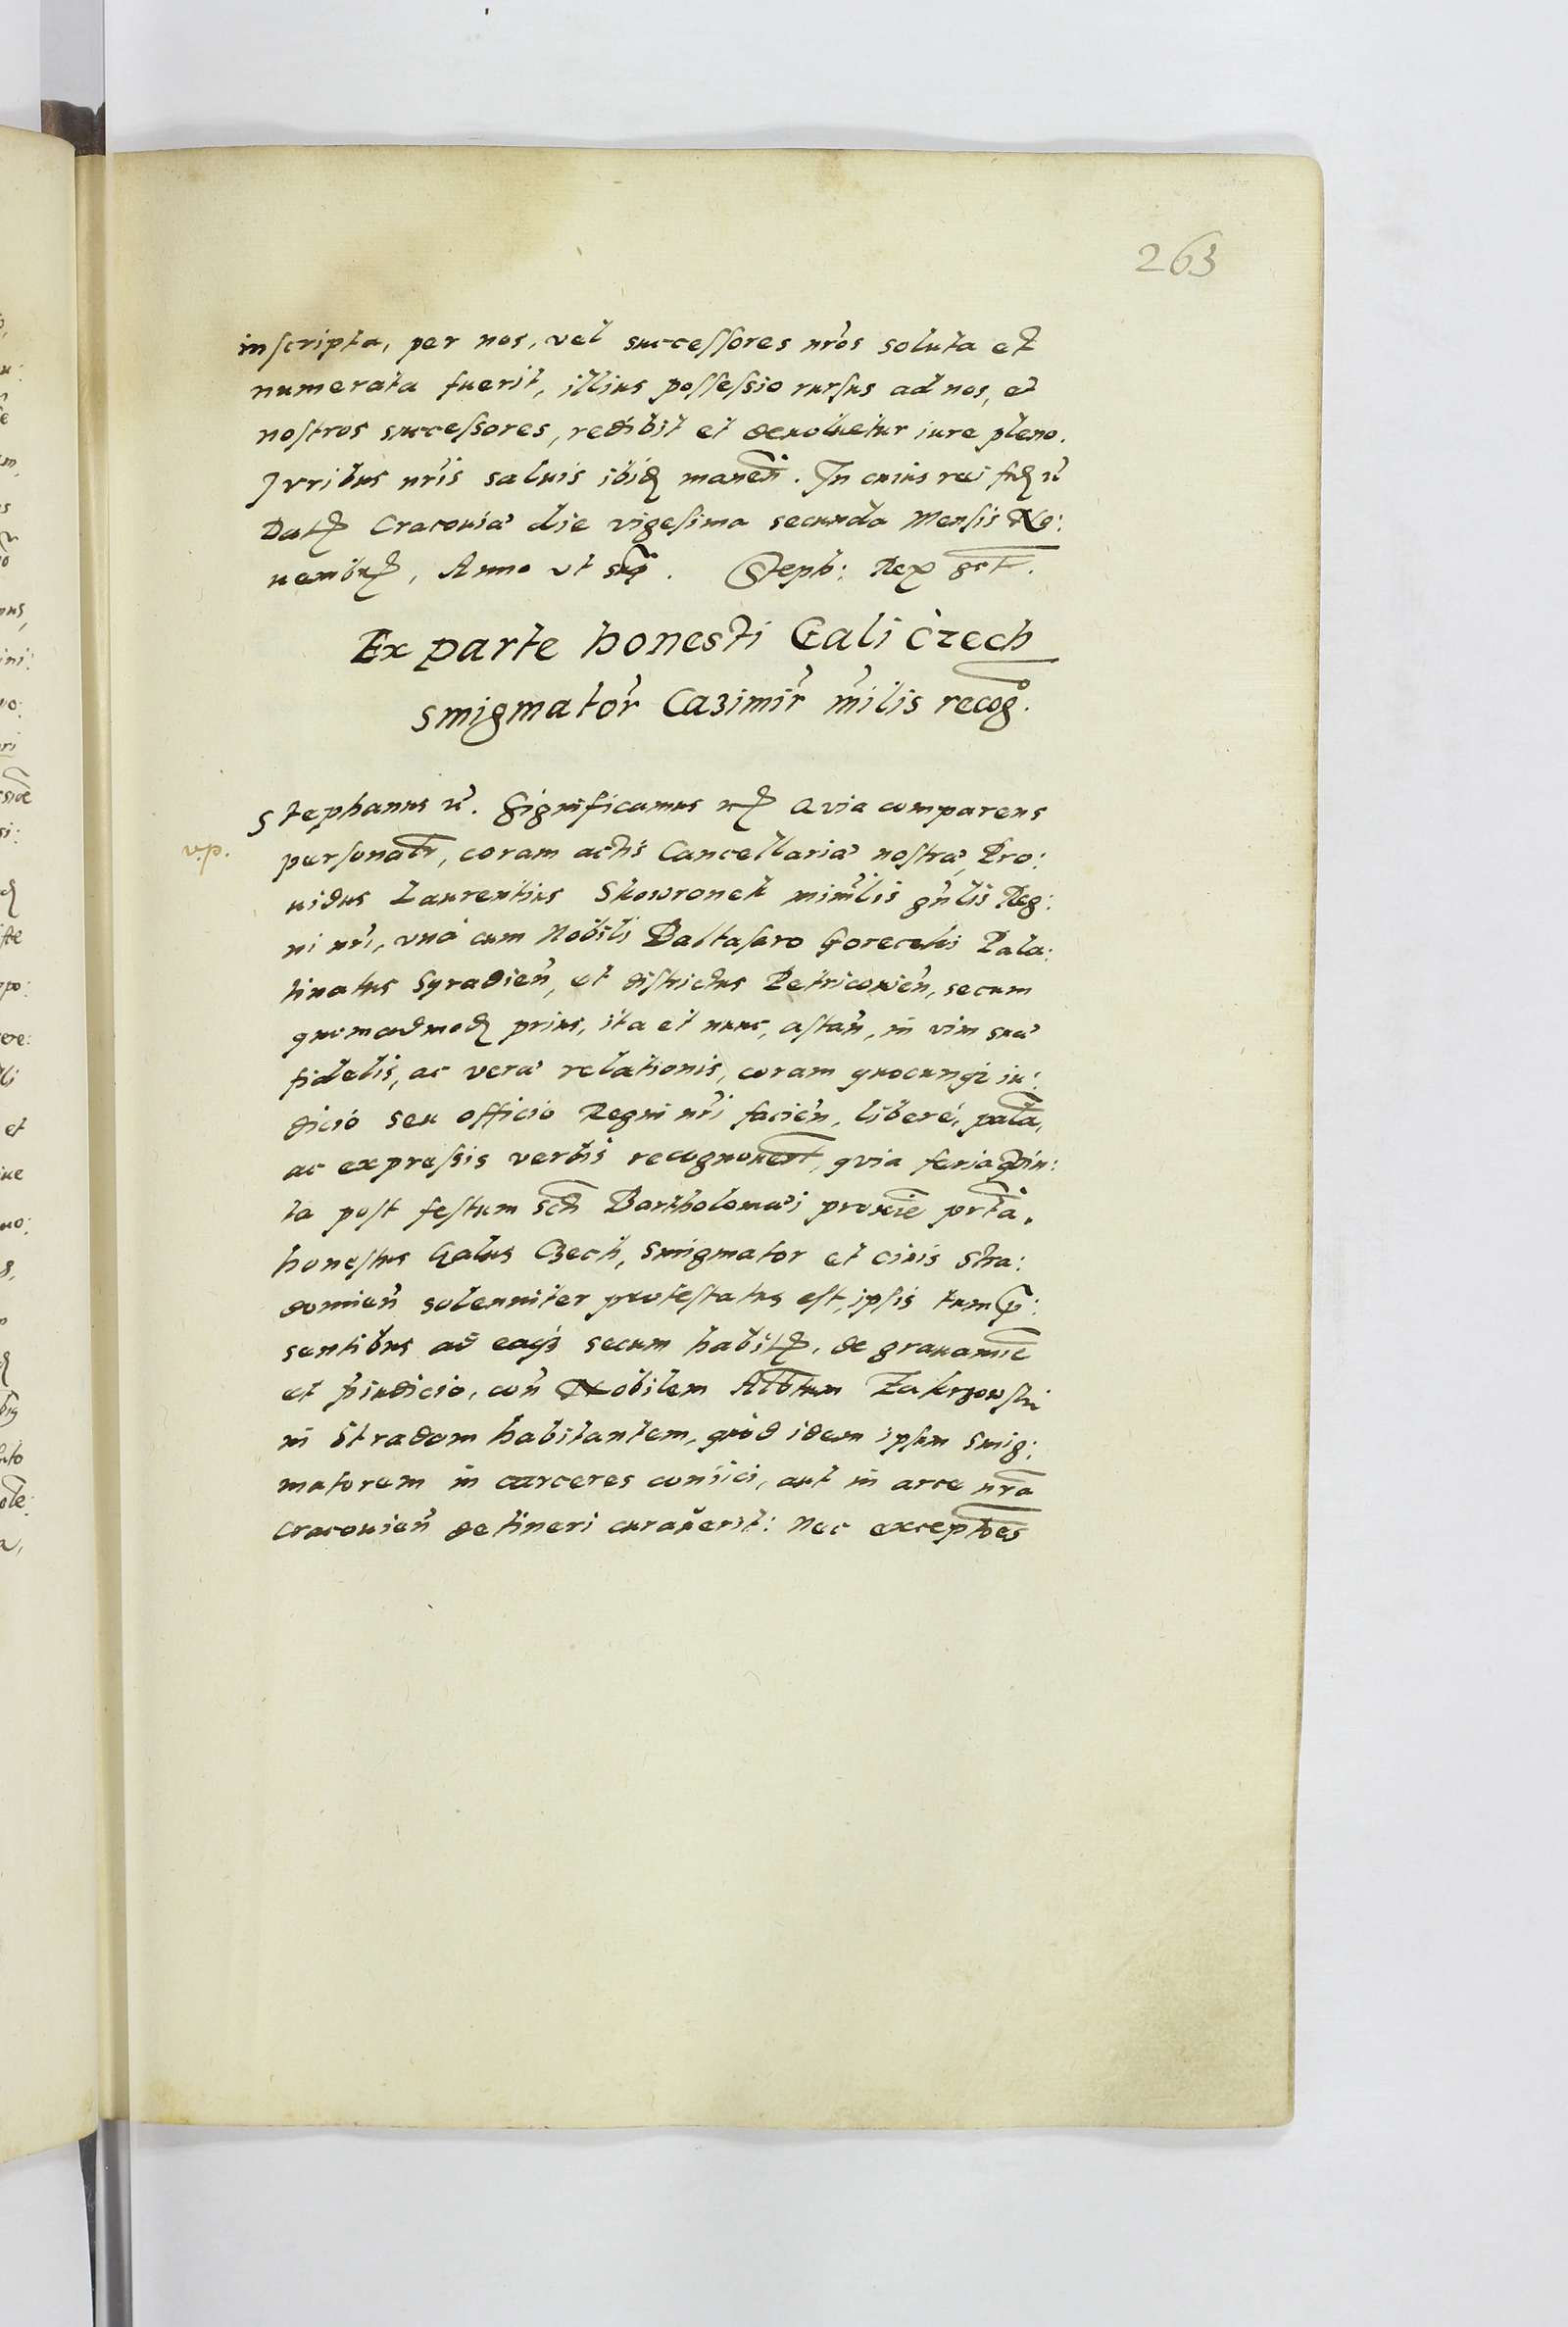 263
inscripta, per nos, vel successores nr̃os soluta et
numerata fuerit, illius possessio rursus ad nos, et
nostros successores, redibit et deuoluetur iure pleno.
Iuribus nr̃is saluis ibid̃ manen̄. In cuius rei fid̃ ec̃
Dat̃ Cracouiæ die vigesima secunda Mensis No:
uembr̃, Anno ut sup̃. Steph: Rex sc̃t.
Ex parte honesti Gali Czech
smigmator̃ Casimir̃ m̃ilis recog̃.
Stephanus ec̃. Significamus ec̃ Quia comparens
personal̃r, coram actis Cancellariæ nostræ, Pro:
uidus Laurentius Skowronek minr̃lis gñlis Reg:
ni nr̃i, vnà cum Nobili Baltasaro Gorecki Pala:
tinatus Syradien̄, et districtus Petricouien̄, secum
quemadmod̃ prius, ita et nunc, astan̄, in vim suæ
fidelis, ac veræ relationis, coram quocunq̃ iu:
dicio seu officio Regni nr̃i facien̄, liberè, palã,
ac expressis verbis recognouer̃t, quia feria quin:
ta post festum sc̃ti Bartholomæi proxiẽ pr̃ta.
honestus Galus Czech, smigmator et ciuis Stra:
domien̄ solenniter protestatus est, ipsis tum p̃:
sentibus ad eaq̃ secum habit̃, de grauamĩe
et p̃iudicio, con̄ Nobilem Alb̃tum Zakrzowski
in Stradom habitantem, quòd idem ipsum smig:
matorem in carceres coniici, aut in arce nr̃a
Cracouien̄ detineri curauerit: Nec exceptões